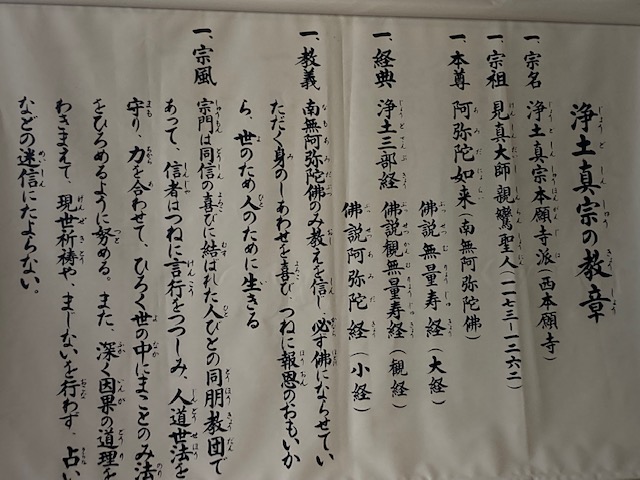 浄土真宗の教章
一、宗名 浄土真宗本願寺派(西本願寺)
一、宗祖 見真大師 親鸞聖人(一一七三ー一二六二)
一、本尊 阿弥陀如来(南無阿弥陀佛)
一、経典 浄土三部経
佛説無量寿経(大経)
佛説観無量寿経(観経)
佛説阿弥陀経(小経)
一、教義 南無阿弥陀佛のみ教えを信じ必ず佛にならせてい
ただく身のしあわせを喜び、つねに報恩のおもいか
ら、世のため人のために生きる
一、宗風 宗門は同信の喜びに結ばれた人びとの同朋教団で
あって、信者はつねに言行をつつしみ、人道世法を
守り、力を合わせて、ひろく世の中にまことのみ法
をひろめるように努める。また、深く因果の道理を
わきまえて、現世祈祷や、まじないを行わず、占い
などの迷信にたよらない。